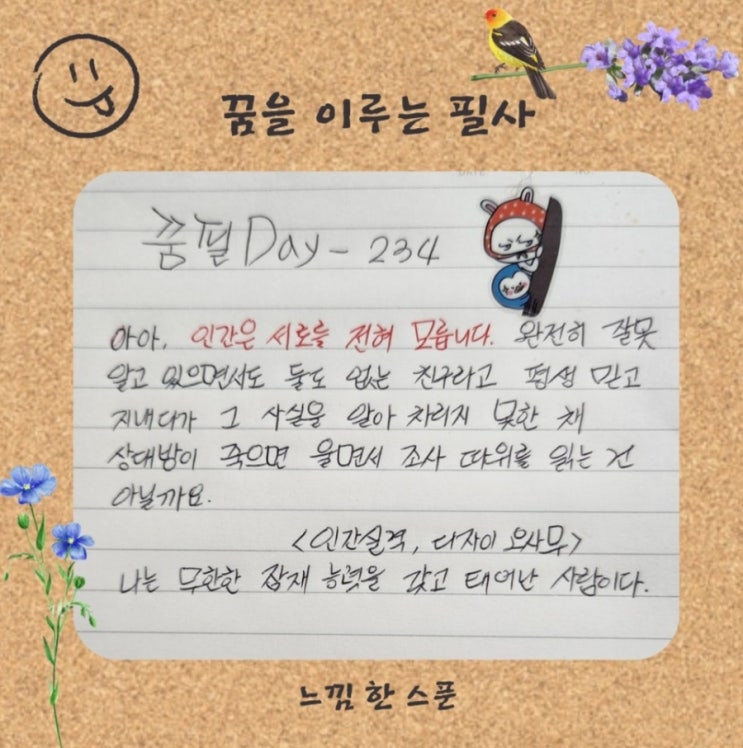 꿈을 이루는 필사
꿈필 Day - 234
아아, 인간은 서로를 전혀 모릅니다. 완전히 잘못
알고 있으면서도 둘도 없는 친구라고 평생 믿고
지내다가 그 사실을 알아 차리지 못한 채
상대방이 죽으면 울면서 조사 따위를 읽는 건
아닐까요.
<인간실격, 다자이 오사무>
나는 무한한 잠재 능력을 갖고 태어난 사람이다.
느낌 한 스푼